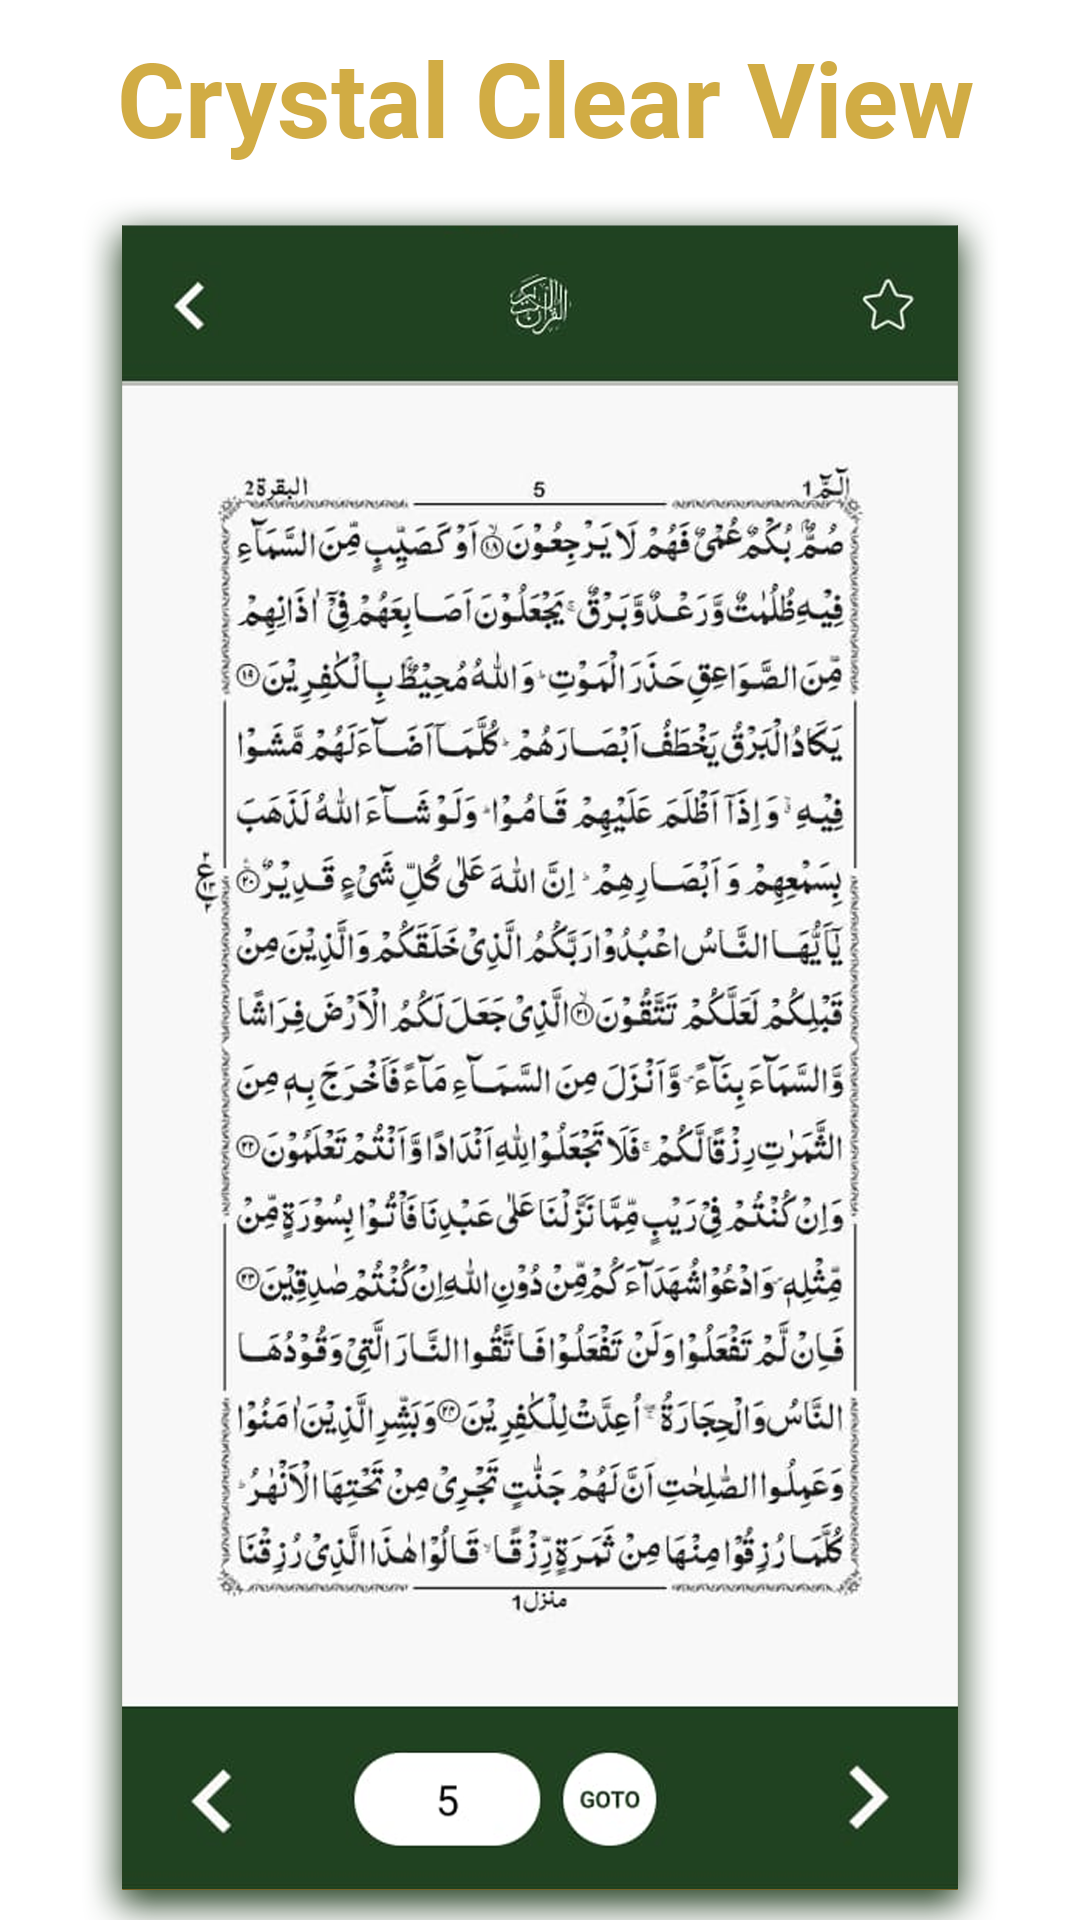 Crystal Clear View
القرآن الكريم
الٓمّٓ 1
5
البقرة 2
صُمٌّۢ بُكْمٌ عُمْیٌ فَهُمْ لَا یَرْجِعُوْنَۙ۝۱۸ اَوْ كَصَیِّبٍ مِّنَ السَّمَآءِ
فِیْهِ ظُلُمٰتٌ وَّ رَعْدٌ وَّ بَرْقٌۚ یَجْعَلُوْنَ اَصَابِعَهُمْ فِیْۤ اٰذَانِهِمْ
مِّنَ الصَّوَاعِقِ حَذَرَ الْمَوْتِؕ وَ اللّٰهُ مُحِیْطٌۢ بِالْكٰفِرِیْنَ۝۱۹
یَكَادُ الْبَرْقُ یَخْطَفُ اَبْصَارَهُمْؕ كُلَّمَاۤ اَضَآءَ لَهُمْ مَّشَوْا
فِیْهِۙ وَ اِذَاۤ اَظْلَمَ عَلَیْهِمْ قَامُوْاؕ وَ لَوْ شَآءَ اللّٰهُ لَذَهَبَ
بِسَمْعِهِمْ وَ اَبْصَارِهِمْؕ اِنَّ اللّٰهَ عَلٰی كُلِّ شَیْءٍ قَدِیْرٌ۠۝۲۰
یٰۤاَیُّهَا النَّاسُ اعْبُدُوْا رَبَّكُمُ الَّذِیْ خَلَقَكُمْ وَ الَّذِیْنَ مِنْ
قَبْلِكُمْ لَعَلَّكُمْ تَتَّقُوْنَۙ۝۲۱ الَّذِیْ جَعَلَ لَكُمُ الْاَرْضَ فِرَاشًا
وَّ السَّمَآءَ بِنَآءً۪ وَّ اَنْزَلَ مِنَ السَّمَآءِ مَآءً فَاَخْرَجَ بِهٖ مِنَ
الثَّمَرٰتِ رِزْقًا لَّكُمْۚ فَلَا تَجْعَلُوْا لِلّٰهِ اَنْدَادًا وَّ اَنْتُمْ تَعْلَمُوْنَ۝۲۲
وَ اِنْ كُنْتُمْ فِیْ رَیْبٍ مِّمَّا نَزَّلْنَا عَلٰی عَبْدِنَا فَاْتُوْا بِسُوْرَةٍ مِّنْ
مِّثْلِهٖ۪ وَ ادْعُوْا شُهَدَآءَكُمْ مِّنْ دُوْنِ اللّٰهِ اِنْ كُنْتُمْ صٰدِقِیْنَ۝۲۳
فَاِنْ لَّمْ تَفْعَلُوْا وَ لَنْ تَفْعَلُوْا فَاتَّقُوا النَّارَ الَّتِیْ وَ قُوْدُهَا
النَّاسُ وَ الْحِجَارَةُ ۖۚ اُعِدَّتْ لِلْكٰفِرِیْنَ۝۲۴ وَ بَشِّرِ الَّذِیْنَ اٰمَنُوْا
وَ عَمِلُوا الصّٰلِحٰتِ اَنَّ لَهُمْ جَنّٰتٍ تَجْرِیْ مِنْ تَحْتِهَا الْاَنْهٰرُؕ
كُلَّمَا رُزِقُوْا مِنْهَا مِنْ ثَمَرَةٍ رِّزْقًاۙ قَالُوْا هٰذَا الَّذِیْ رُزِقْنَا
منزل 1
5
GOTO